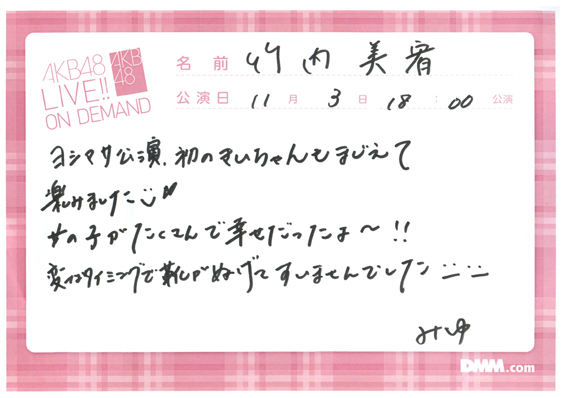 AKB48
LIVE!!
ON DEMAND
AKB
48
名前 竹内 美宥
公演日 11月 3日 18:00 公演
ヨシマサ公演、初のまいちゃんもまじえて
楽みました
女の子がたくさんで幸せだったよ〜!!
変なタイミングで靴がぬげてすいませんでした
みゆ
DMM.com